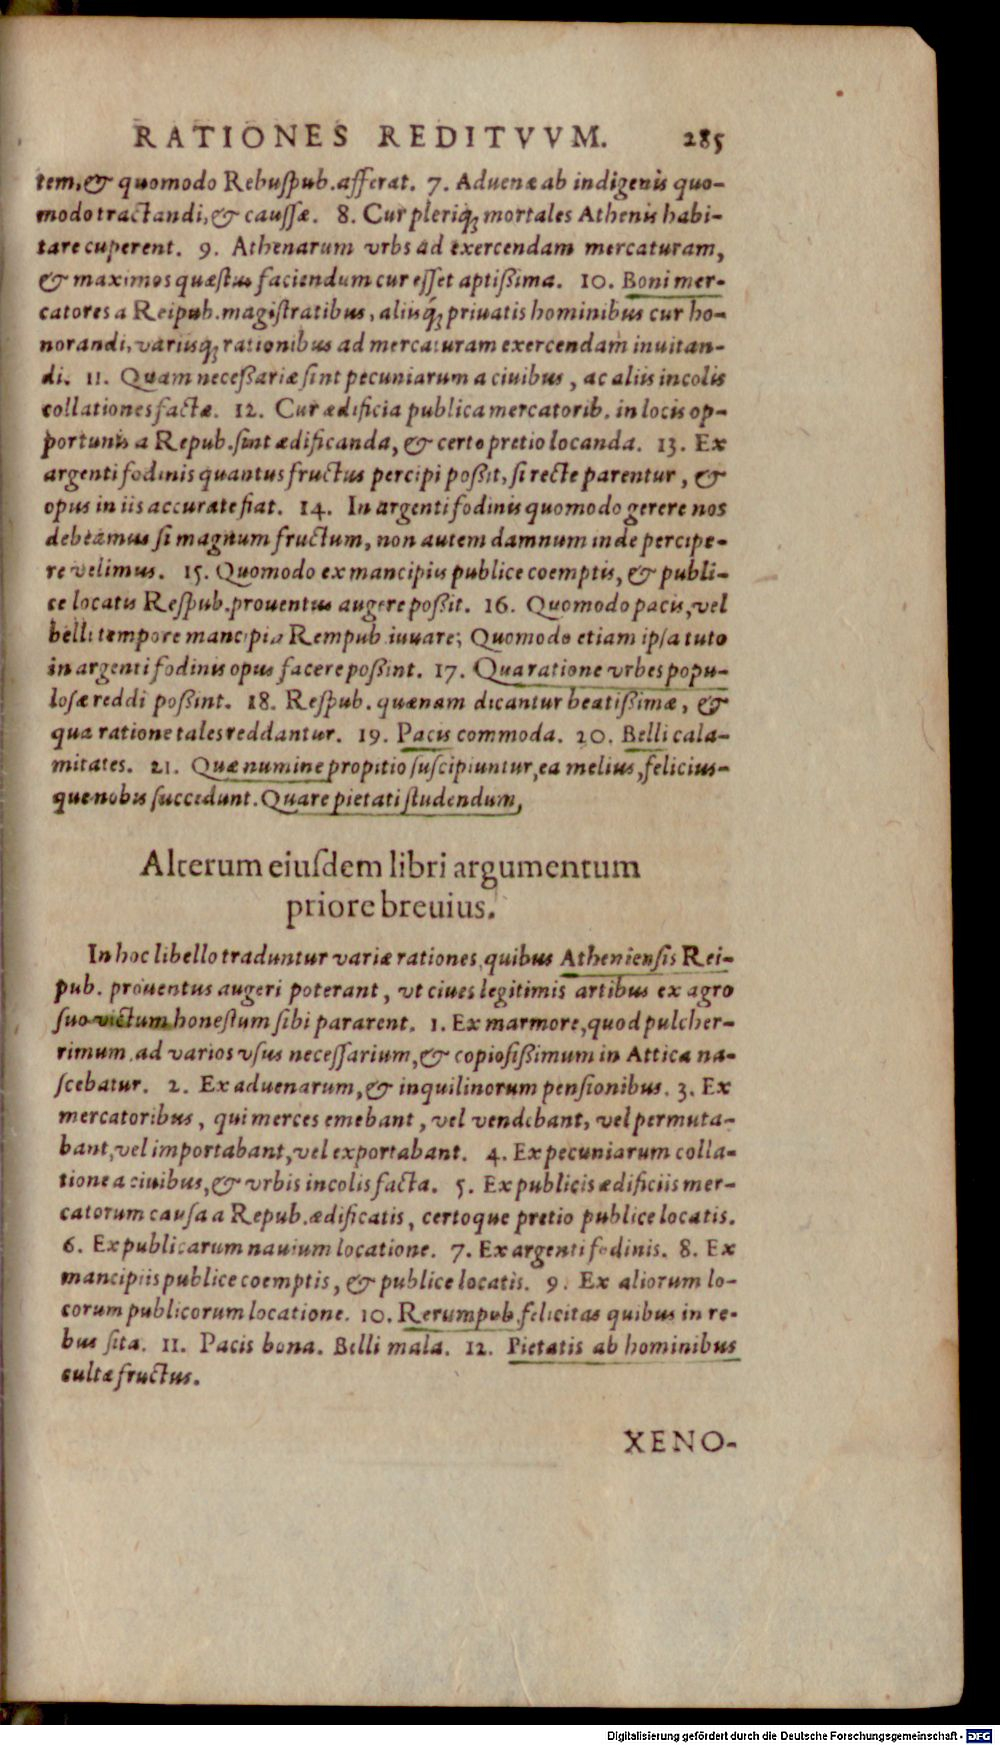 RATIONES REDITVVM. 285
tem, & quomodo Rebuſpub. afferat. 7. Aduenæ ab indigenis quo-
modo tractandi, & cauſſæ. 8. Cur pleriq́; mortales Athenis habi-
tare cuperent. 9. Athenarum vrbs ad exercendam mercaturam,
& maximos quæſtus faciendum cur eſſet aptißima. 10. Boni mer-
catores a Reipub. magiſtratibus, aliisq́; priuatis hominibus cur ho-
norandi, variisq́; rationibus ad mercaturam exercendam inuitan-
di. 11. Quam neceßariæ ſint pecuniarum a ciuibus, ac aliis incolis
collationes factæ. 12. Cur ædificia publica mercatorib. in locis op-
portunis a Repub. ſint ædificanda, & certo pretio locanda. 13. Ex
argentifodinis quantus fructus percipi poßit, ſi recte parentur, &
opus in iis accurate fiat. 14. In argentifodinis quomodo gerere nos
debeamus ſi magnum fructum, non autem damnum inde percipe-
re velimus. 15. Quomodo ex mancipiis publice coemptis, & publi-
ce locatis Reſpub. prouentus augere poßit. 16. Quomodo pacis, vel
belli tempore mancipia Rempub. iuuare; Quomodo etiam ipſa tuto
in argentifodinis opus facere poßint. 17. Qua ratione vrbes popu-
loſæ reddi poßint. 18. Reſpub. quænam dicantur beatißimæ, &
qua ratione tales reddantur. 19. Pacis commoda. 20. Belli cala-
mitates. 21. Quæ numine propitio ſuſcipiuntur, ea melius, felicius-
que nobis ſuccedunt. Quare pietati ſtudendum,
Alterum eiuſdem libri argumentum
priore breuius.
In hoc libello traduntur variæ rationes, quibus Athenienſis Rei-
pub. prouentus augeri poterant, vt ciues legitimis artibus ex agro
ſuo victum honeſtum ſibi pararent. 1. Ex marmore, quod pulcher-
rimum, ad varios vſus neceſſarium, & copioſißimum in Attica na-
ſcebatur. 2. Ex aduenarum, & inquilinorum penſionibus. 3. Ex
mercatoribus, qui merces emebant, vel vendebant, vel permuta-
bant, vel importabant, vel exportabant. 4. Ex pecuniarum colla-
tione a ciuibus, & vrbis incolis facta. 5. Ex publicis ædificiis mer-
catorum cauſa a Repub. ædificatis, certoque pretio publice locatis.
6. Ex publicarum nauium locatione. 7. Ex argentifodinis. 8. Ex
mancipiis publice coemptis, & publice locatis. 9. Ex aliorum lo-
corum publicorum locatione. 10. Rerumpub. felicitas quibus in re-
bus ſita. 11. Pacis bona. Belli mala. 12. Pietatis ab hominibus
cultæ fructus.
XENO-
Digitalisierung gefördert durch die Deutsche Forschungsgemeinschaft - DFG